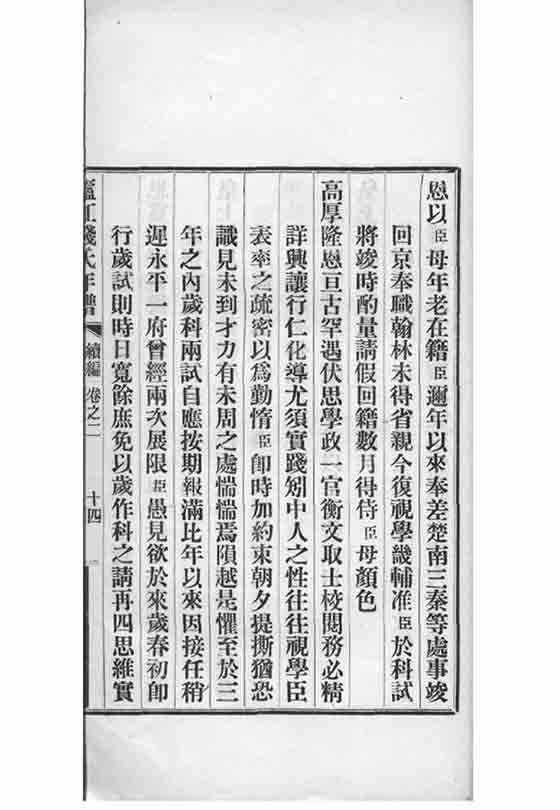 恩以臣母年老在籍臣邇年以來奉差楚南三秦等處事竣
回京奉職翰林未得省親今復視學畿輔准臣於科試
將竣時酌量請假回籍數月得侍臣母顏色
高厚隆恩亘古罕遇伏思學政一官衡文取士校閱務必精
詳興讓行仁化導尤須實踐矧中人之性往往視學臣
表率之疏密以爲勤惰臣卽時加約束朝夕提撕猶恐
識見未到才力有未周之處惴惴焉隕越是懼至於三
年之內歲科兩試自應按期報滿比年以來因接任稍
遲永平一府曾經兩次展限臣愚見欲於來歲春初卽
行歲試則時日寬餘庶免以歲作科之請再四思維實
年譜
續編
卷之二
十四